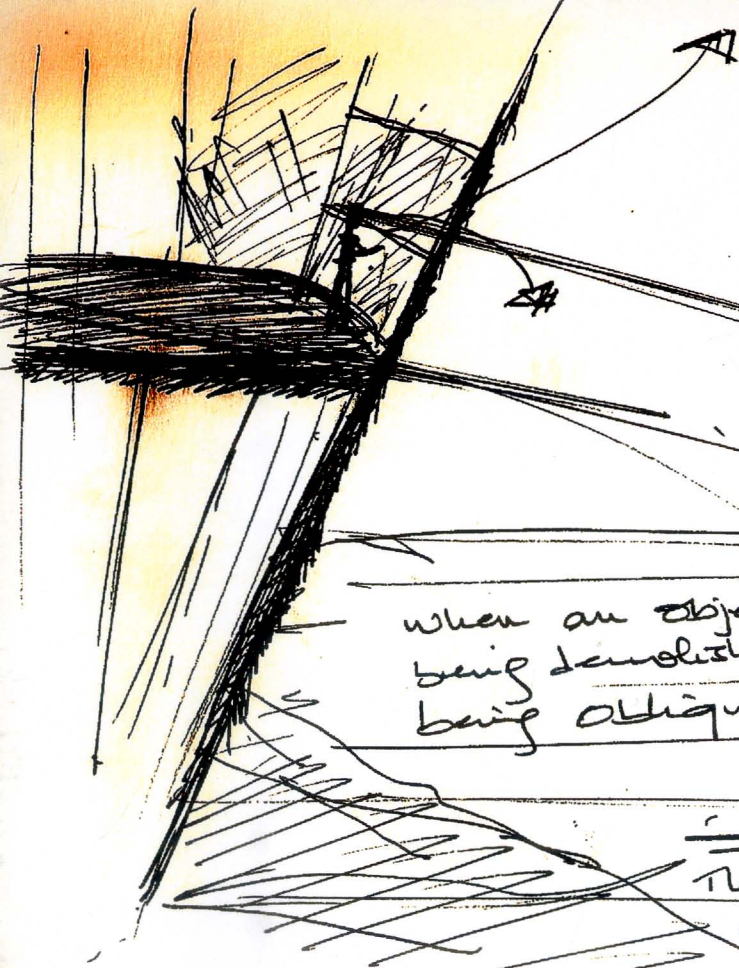 when an obje
being demolish
being obliqu